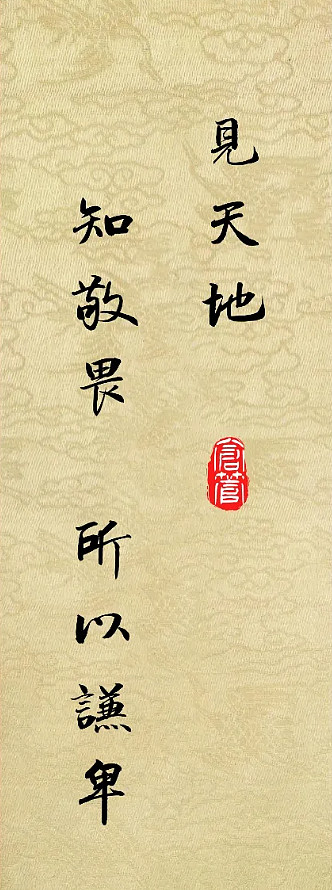 見天地
知敬畏 所以謙卑